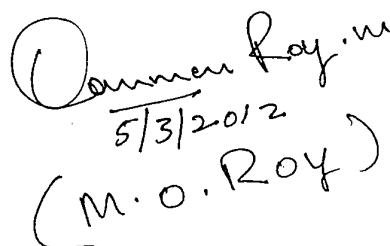 Oommen Roy.m
5/3/2012
(M.O.Roy)